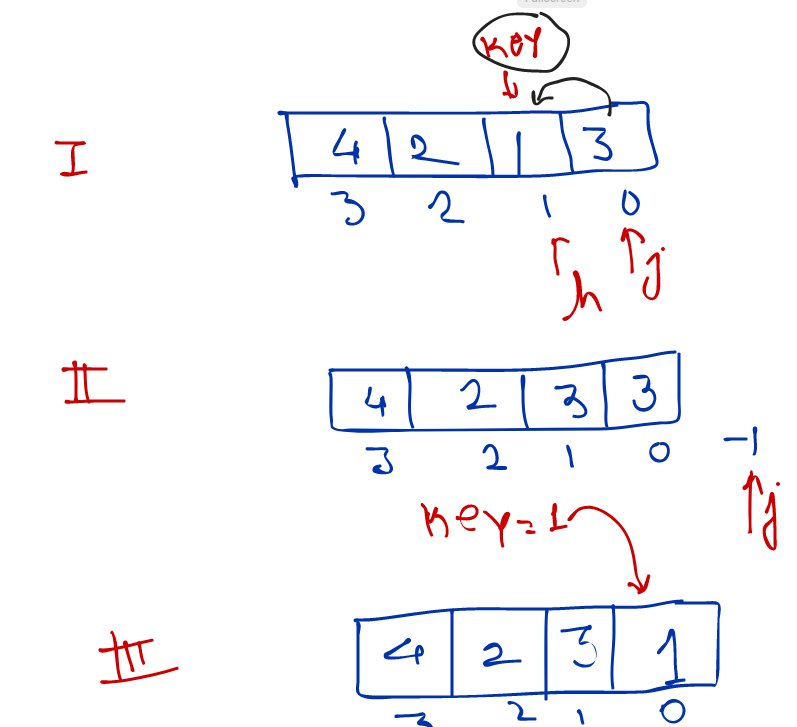 KEY
I
4 2 1 3
3 2 1 0
h j
II
4 2 3 3
3 2 1 0 -1
j
KEY=1
III
4 2 3 1
3 2 1 0